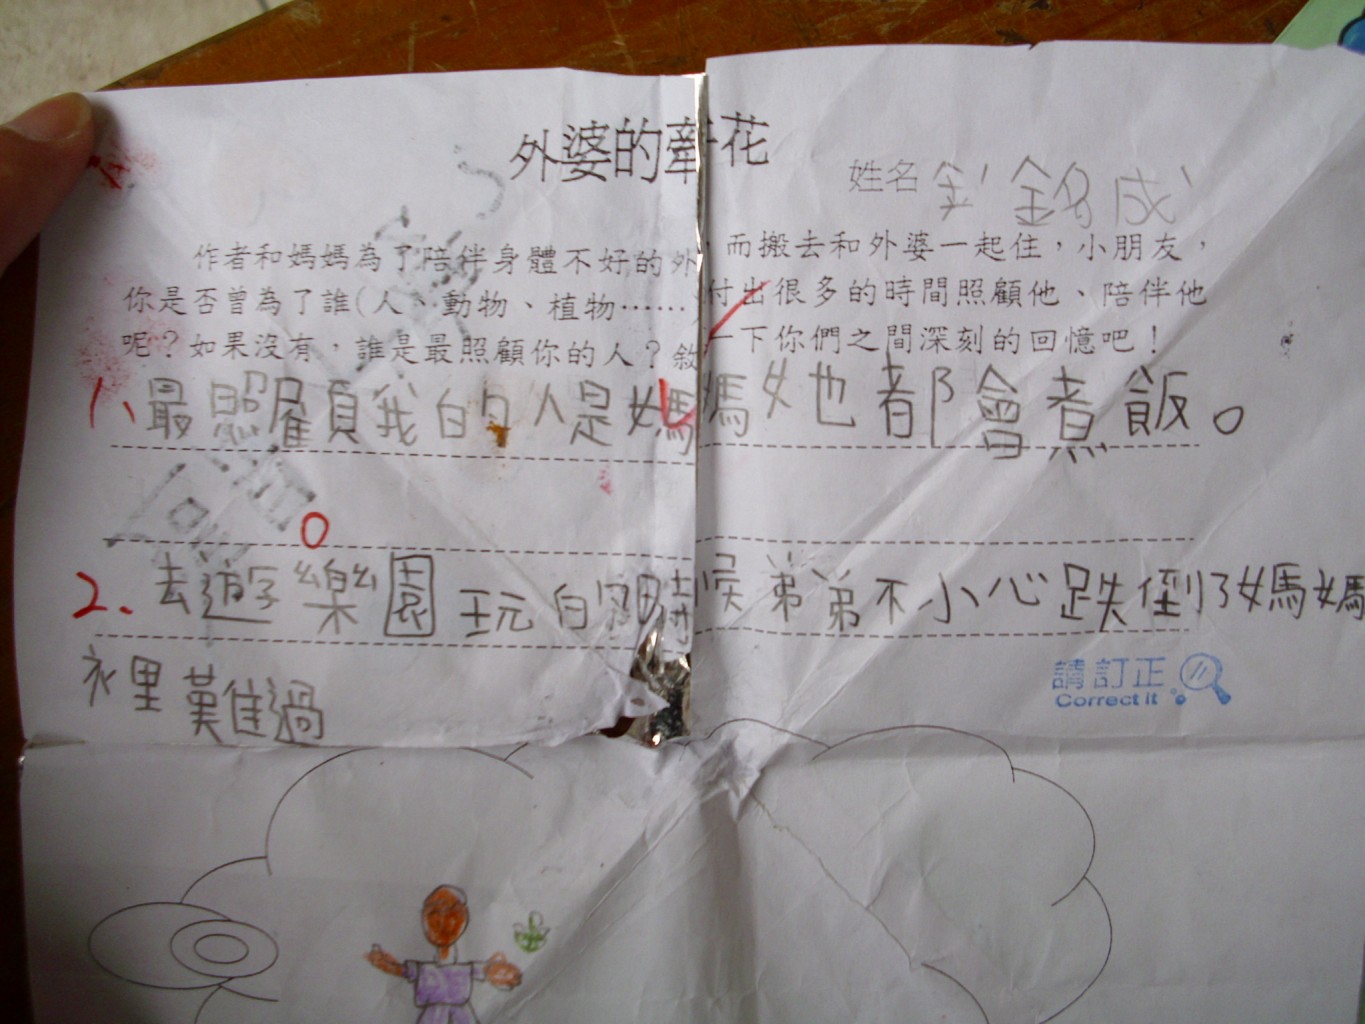 外婆的牽花
姓名 銘成
作者和媽媽為了陪伴身體不好的外，而搬去和外婆一起住，小朋友，
你是否曾為了誰(人、動物、植物……)付出很多的時間照顧他、陪伴他
呢？如果沒有，誰是最照顧你的人？敘一下你們之間深刻的回憶吧！
1、最照顧我的人是媽媽她都會煮飯。
2、去遊樂園玩的時候弟弟不小心跌倒了媽媽
裡難過
請訂正
Correct it